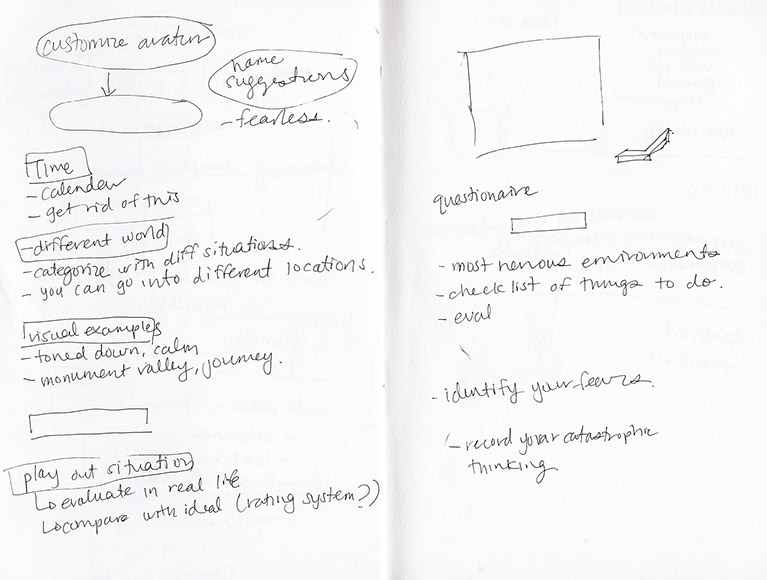 customize avatar
name
suggestions
- fearless.
Time
- calender
- get rid of this
- different world
- categorize with diff situations.
- you can go into different locations.
visual examples
- toned down, calm
- monument valley, journey.
play out situation
↳ evaluate in real life
↳ compare with ideal (rating system?)
questionaire
- most nervous environments
- check list of things to do.
- eval
- identify your fears.
- record your catastrophic
thinking